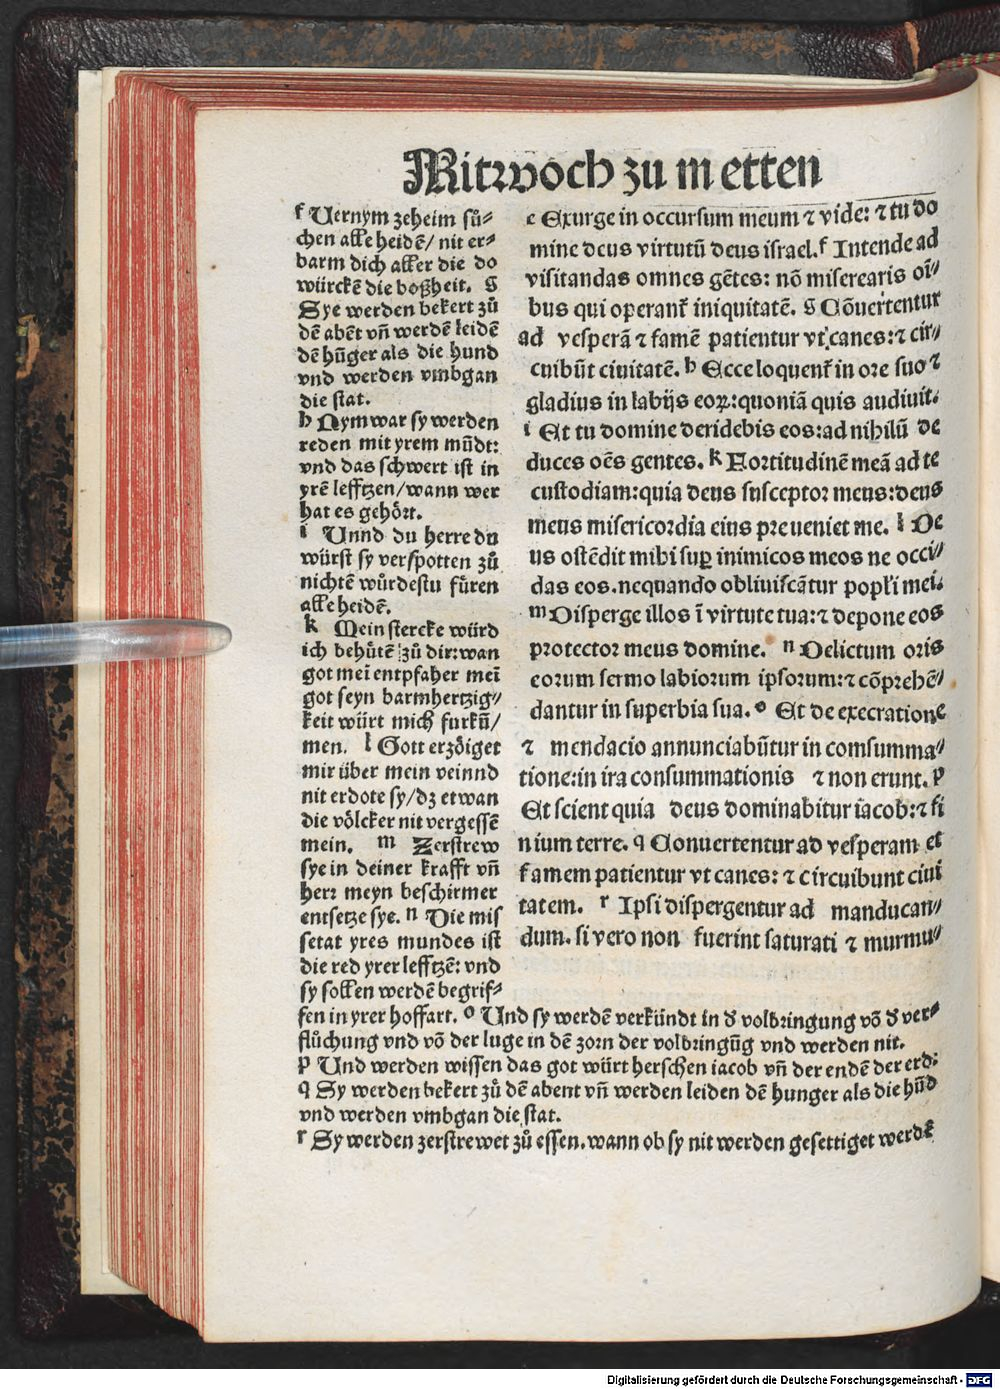 Mitzwoch zu metten
f Vernym zeheim sů⸗
chen alle heidē/ nit er⸗
barm dich aller die do
würckē die boßheit. g
Sye werden bekert zů
dē abēt vñ werdē leidē
dē hūger als die hund
vnd werden vmbgan
die stat.
h Nym war sy werden
reden mit yrem mūdt:
vnd das schwert ist in
yrē lefftzen/wann wer
hat es gehört.
i Unnd du herre du
würst sy verspotten zů
nichtē wůrdestu füren
alle heidē.
k Mein stercke würd
ich behůtē zů dir:wan
got mei entpfaher mei
got seyn barmhertzig⸗
keit würt mich furkū/
men. l Gott erzöiget
mir über mein veinnd
nit erdote sy/dz etwan
die völcker nit vergessē
mein. m Zerstrew
sye in deiner krafft vñ
herr meyn beschirmer
entsetze sye. n Die mis
setat yres mundes ist
die red yrer lefftzē: vnd
sy sollen werdē begrif⸗
fen in yrer hoffart. o Und sy werdē verkündt in d᷑ volbringung vō d᷑ ver⸗
flůchung vnd vō der luge in dē zorn der volbringūg vnd werden nit.
p Und werden wissen das got würt herschen iacob vñ der endē der erd:
q Sy werden bekert zů dē abent vñ werden leiden dē hunger als die hūd
vnd werden vmbgan die stat.
r Sy werden zerstrewet zů essen. wann ob sy nit werden gesettiget werdē
e Exurge in occursum meum ⁊ vide: ⁊ tu do
mine deus virtutū deus israel. f Intende ad
visitandas omnes gētes: nō miserearis oī⸗
bus qui operanť iniquitatē. g Cōuertentur
ad vesperā ⁊ famē patientur vt canes: ⁊ cir⸗
cuibūt ciuitatē. h Ecce loquenť in ore suo ⁊
gladius in labijs eoꝝ: quoniā quis audiuit.
i Et tu domine deridebis eos: ad nihilū de
duces oēs gentes. k Fortitudinē meā ad te
custodiam: quia deus susceptor meus: deus
meus misericordia eius preueniet me. l De
us ostēdit mihi suꝑ inimicos meos ne occi⸗
das eos. nequando obliuiscātur popľi mei.
m Disperge illos ī virtute tua: ⁊ depone eos
protector meus domine. n Delictum oris
eorum sermo labiorum ipsorum: ⁊ cōprehē⸗
dantur in superbia sua. o Et de execratione
⁊ mendacio annunciabūtur in comsumma⸗
tione: in ira consummationis ⁊ non erunt. p
Et scient quia deus dominabitur iacob: ⁊ fi
nium terre. q Conuertentur ad vesperam et
famem patientur vt canes: ⁊ circuibunt ciui
tatem. r Ipsi dispergentur ad manducan⸗
dum. si vero non fuerint saturati ⁊ murmu⸗
Digitalisierung gefördert durch die Deutsche Forschungsgemeinschaft - DFG